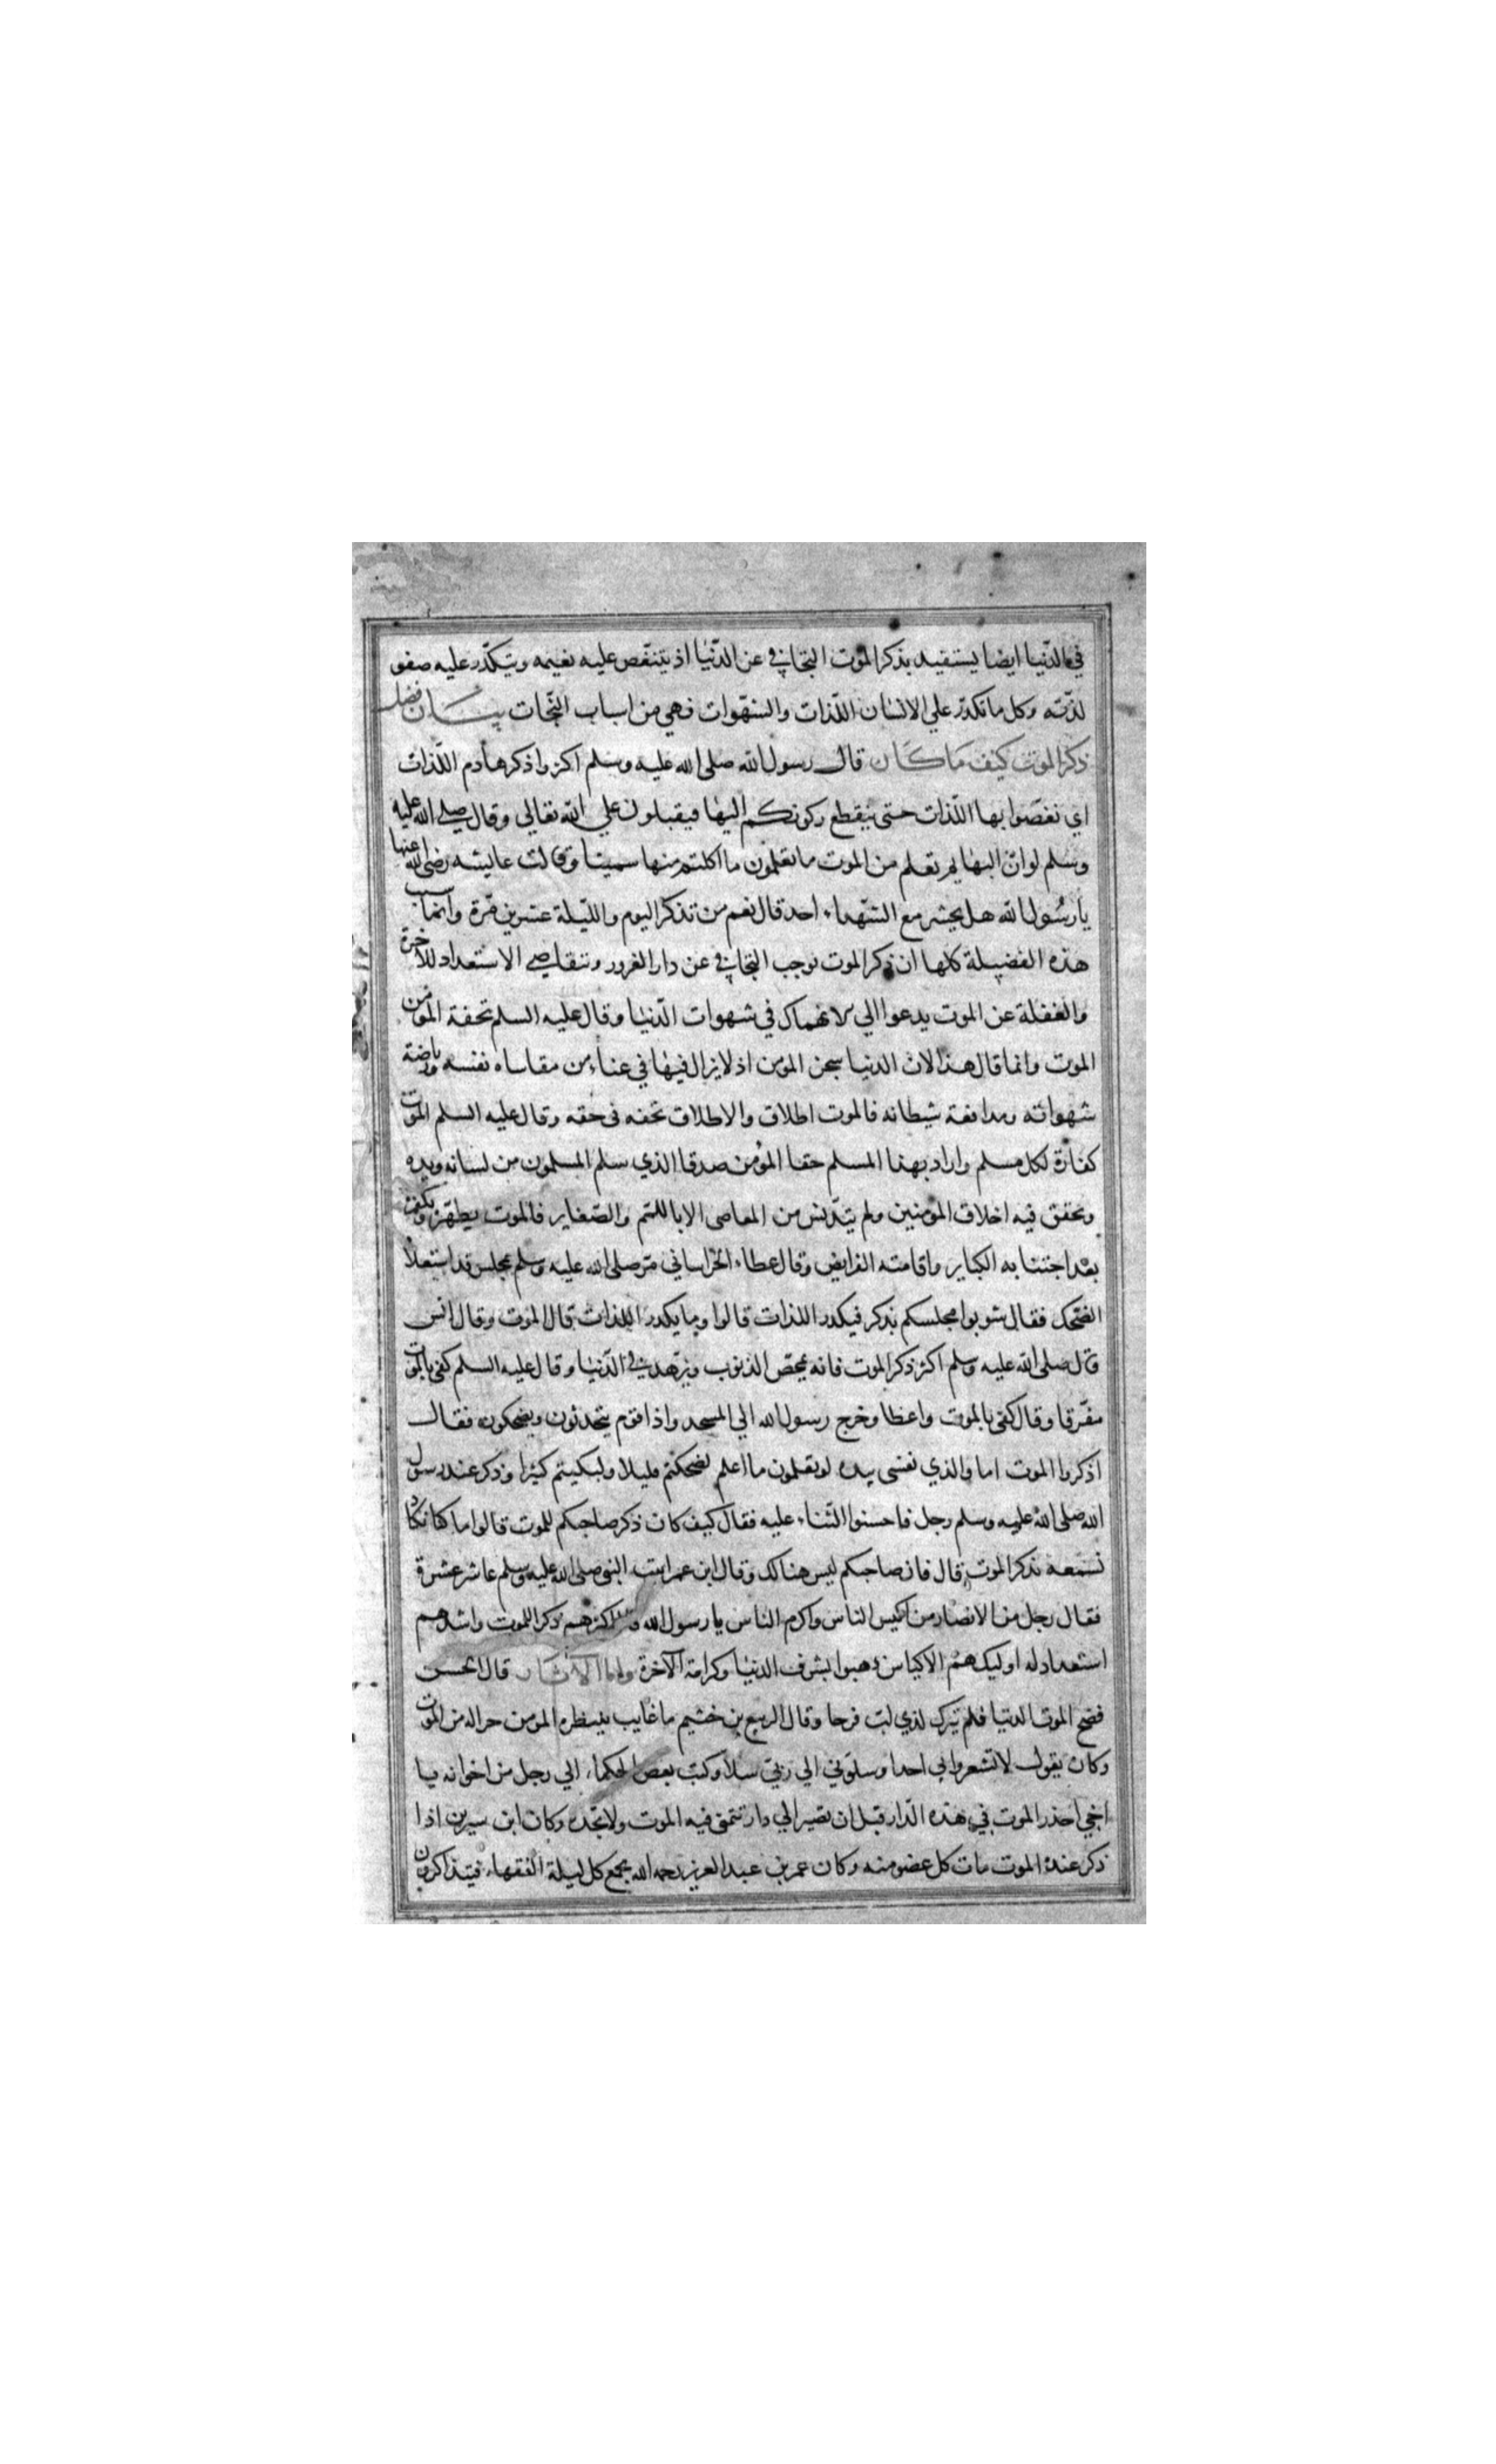 في الدّنيا ايضا يستفيد بذكر الموت التجافي عن الدّنيا اذ يتنغّص عليه نعيمه ويتكدّر عليه صفو
لذّته وكل ما تكدّر علي الانسان اللّذات والشهّوات فهي من اسباب النّجات بيــان فضل
ذكر الموت كيف ما كان قال رسول الله صلى الله عليه وسلم اكثروا ذكر هادم اللّذات
اي نغصّوا بها اللّذات حتى ينقطع ركونكم اليها فيقبلون علي الله تعالي وقال صلى الله عليه
وسلم لو انّ البهايم تعلم من الموت ما تعلمون ما اكلتم منها سمينا وقالت عايشه رضى الله عنها
يا رسُول الله هل يحشر مع الشّهداء احد قال نعم من تذكر اليوم واللّيلة عشرين مّرة وانما سبب
هذه الفضيلة كلها ان ذكر الموت يوجب التجافي عن دار الغرور وتتقاضي الاستعداد للاخرة
والغفلة عن الموت يدعوا الي الانهماك في شهوات الدّنيا وقال عليه السلم تحفة المؤمن
الموت وانما قال هذا لان الدنيا سجن المومن اذ لا يزال فيها في عناء من مقاساه نفسه ورياضة
شهواته ومدافعة شيطانه فالموت اطلاق والاطلاق تحفه فى حقه وقال عليه السلم الموت
كفارة لكل مسلم واراد بهذا المسلم حقا المؤمن صدقا الذي سلم المسلمون من لسانه ويده
وتحقق فيه اخلاق المؤمنين ولم يتدّنس من المعاصى الا باللمم والصّغاير فالموت يطهّره ويكفر
بعد اجتنابه الكباير واقامته الفرايض وقال عطاء الخراساني مر صلى الله عليه وسلم بمجلس قد استعلاه
الضّحك فقال شوبوا مجلسكم بذكر فيكدر اللذات قالوا وما يكدر اللذات قال الموت وقال انس
قال صلى الله عليه وسلم اكثر ذكر الموت فانه يمحّص الذنوب ويزهد في الدّنيا وقال عليه السلم كفى بالموت
مفّرقا وقال كفى بالموت واعظا وخرج رسول الله الي المسجد واذا قوم يتحدثون ويضحكون فقال
اذكروا الموت اما والذي نفسى بيده لو تعلمون ما اعلم لضحكتم قليلا ولبكيتم كثيرا وذكر عند رسول
الله صلى الله عليه وسلم رجل فاحسنوا الثّناء عليه فقال كيف كان ذكر صاحبكم للموت قالوا ما كنا نكاد
نسمعه يذكر الموت قال فان صاحبكم ليس هنالك وقال ابن عمر اتيت النبى صلى الله عليه وسلم عاشر عشرة
فقال رجل من الانصار من اكيس الناس واكرم الناس يا رسول الله اكثرهم ذكرا للموت واشدهم
استعدادا له اوليك هم الاكياس ذهبوا بشرف الدنيا وكرامة الآخرة واما الآثار قال الحسن
فضح الموت الدنيا فلم يترك لذي لب فرحا وقال الربيع بن خثيم ما غايب ينتظره المومن خير له من الموت
وكان يقول لا تشعروا بي احدا وسلوني الي ربّي سلاّ وكتب بعض الحكماء الي رجل من اخوانه يا
اخي احذر الموت في هذه الدّار قبل ان تصير الي دار تتمنى فيه الموت ولا تجده وكان ابن سيرين اذا
ذكر عنده الموت مات كل عضو منه وكان عمر بن عبد العزيز رحمه الله يجمع كل ليلة الفقهاء فيتذاكرون